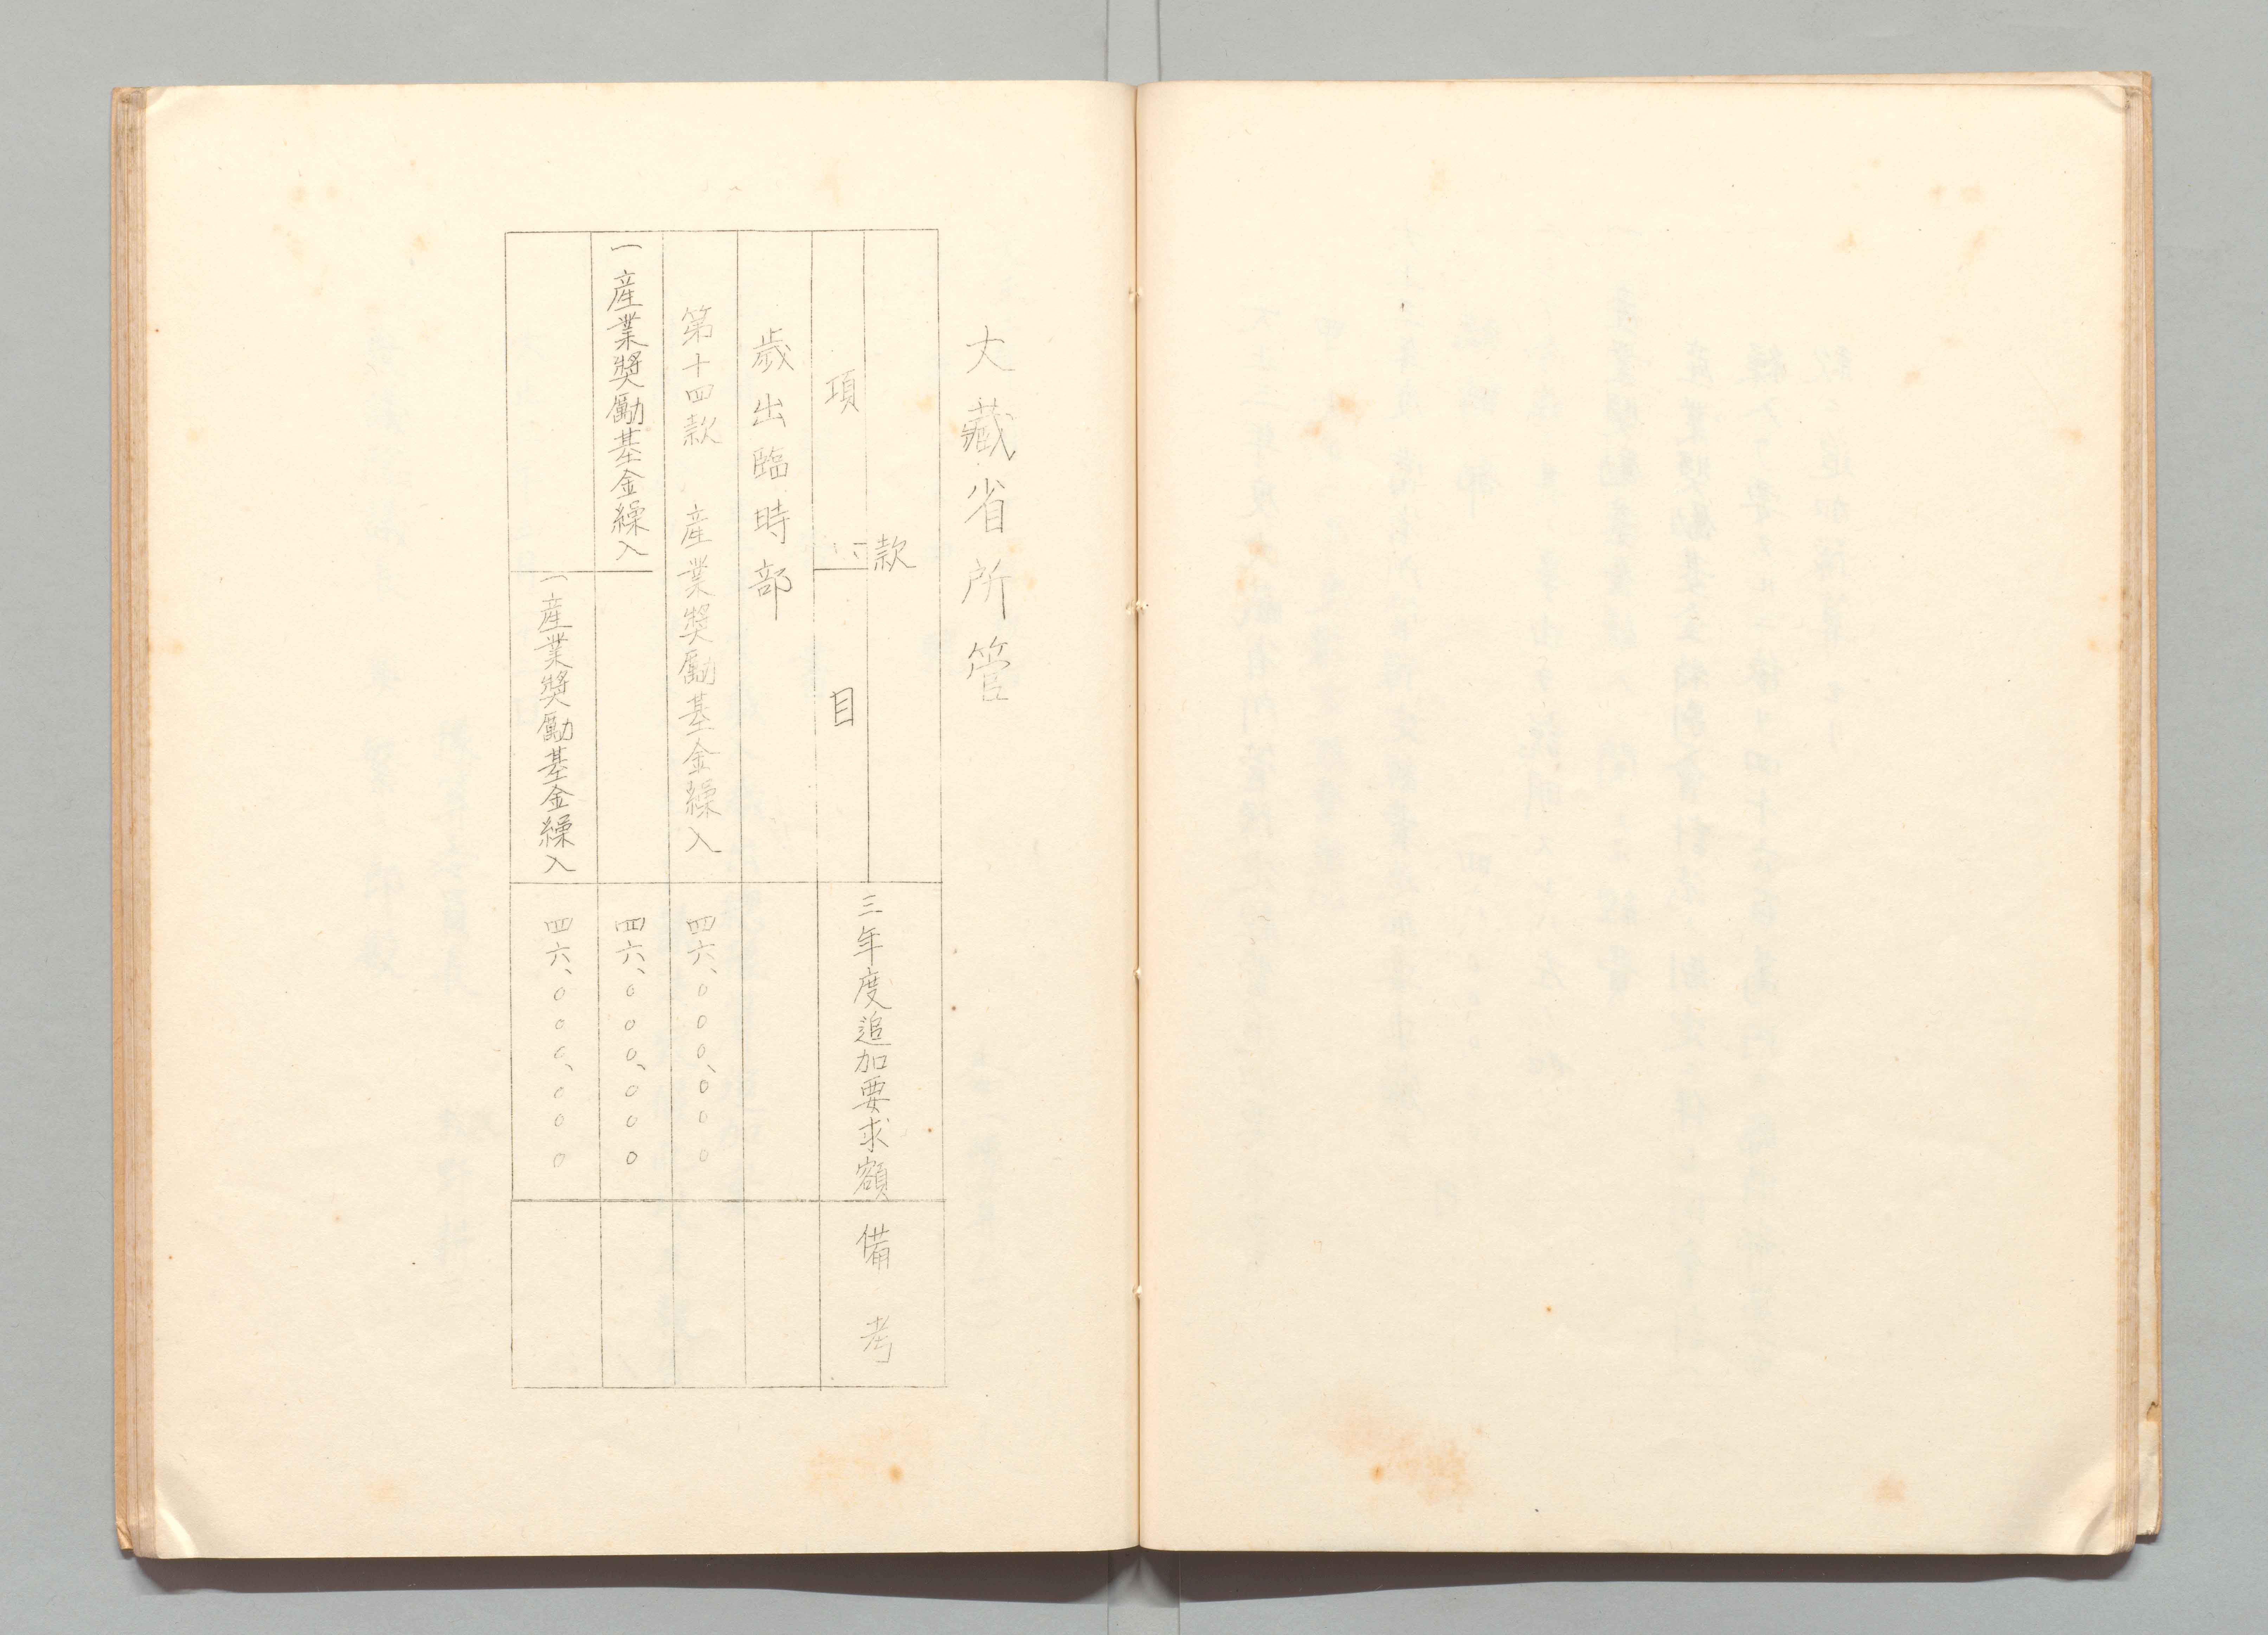 大藏省所管
款
項
目
三年度追加要求額
備考
歳出臨時部
第十四款 産業奨勵基金繰入
四六、〇〇〇、〇〇〇
一産業奨勵基金繰入
四六、〇〇〇、〇〇〇
一産業奨勵基金繰入
四六、〇〇〇、〇〇〇